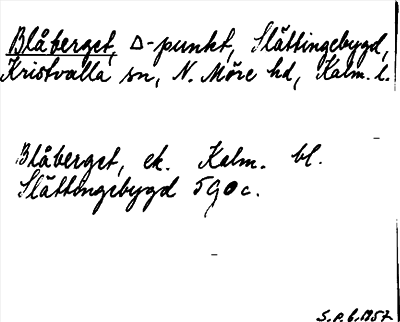 Blåberget, Δ-punkt, Slättingebygd,
Kristvalla sn, N. Möre hd, Kalm. l.
Blåberget, ek. Kalm. bl.
Slättingebygd 5 9 0 c.
S.P.6.1957